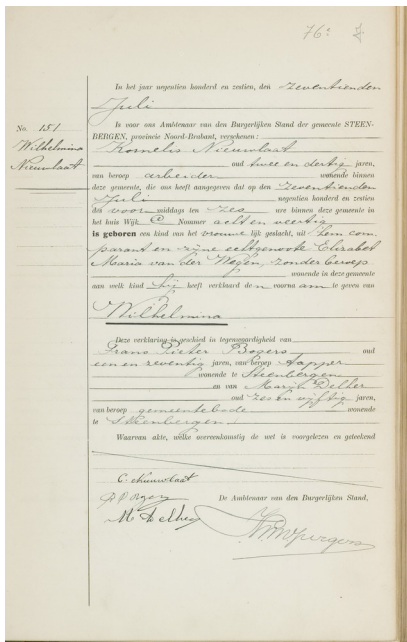 76
In het jaar negentien honderd en zestien, den zeventienden
Juli
Is voor ons Ambtenaar van den Burgerlijken Stand der gemeente STEEN-
BERGEN, provincie Noord-Brabant, verschenen:
No. 151
Wilhelmina
Nieuwlaat
Kornelis Nieuwlaat
oud twee en dertig jaren,
van beroep arbeider wonende binnen
deze gemeente, die ons heeft aangegeven dat op den zeventienden
Juli negentien honderd en zestien
des voor middags ten zes ure binnen deze gemeente in
het huis Wijk Nommer acht en veertig
is geboren een kind van het vrouwe lijk geslacht, uit hem com
parant en zijne echtgenoote Elizabet
Maria van der Wegen, zonder beroep
wonende in deze gemeente
aan welk kind hij heeft verklaard den voornaam te geven van
Wilhelmina
Deze verklaring is geschied in tegenwoordigheid van
Frans Pieter Bogers oud
een en zeventig jaren, van beroep tapper
wonende te Steenbergen
en van Marijn Delher
oud zes en vijftig jaren,
van beroep gemeentebode wonende
te Steenbergen.
Waarvan akte, welke overeenkomstig de wet is voorgelezen en geteekend
C Nieuwlaat
De Ambtenaar van den Burgerlijken Stand,
M Delher